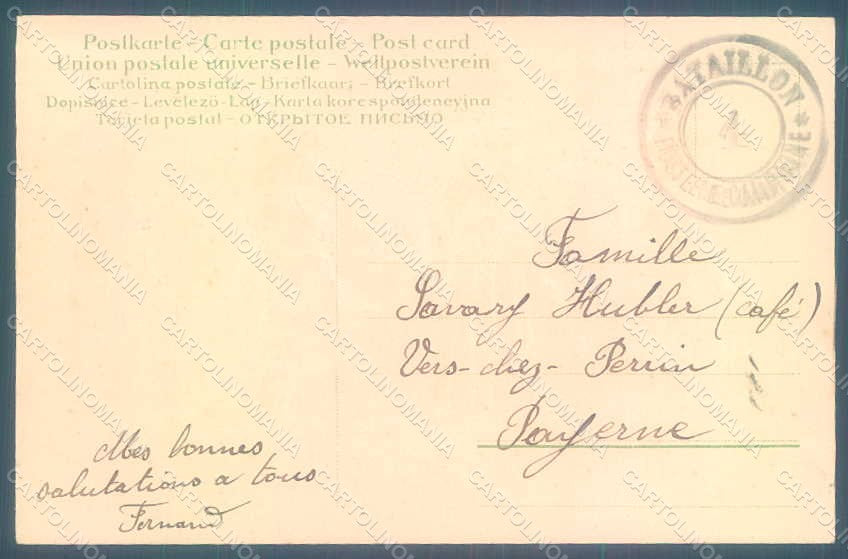 Postkarte - Carte postale - Post card
Union postale universelle - Weltpostverein
Cartolina postale - Briefkaart - Brefkort
Dopisnice - Levelező-Lap - Karta korespondencyjna
Tarjeta postal - ОТКРЫТОЕ ПИСЬМО
* BATAILLON *
Famille
Savary Hubler (café)
Vers-chez-Perrin
Payerne
Mes bonnes
salutations a tous
Fernand
CARTOLINOMANIA